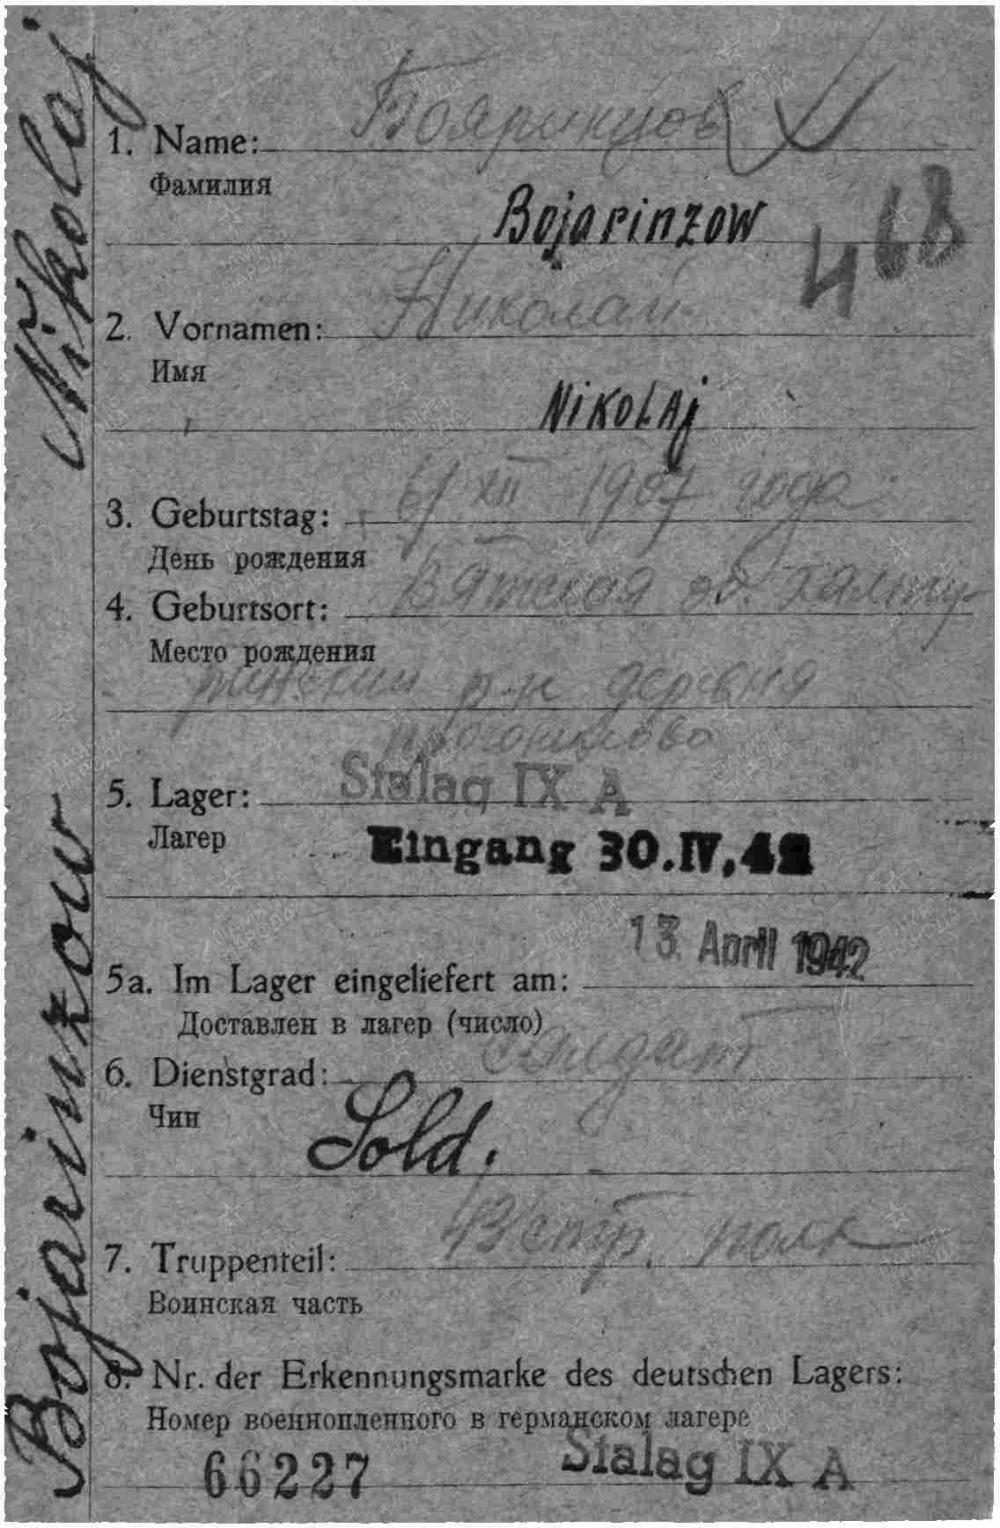 Бояринцов
1. Name:
Фамилия
Bojarinzow
468
Николай
2. Vornamen:
Имя
Nikolaj
3. Geburtstag: 6/XII 1907 года
День рождения
4. Geburtsort: Вятская об. Халту-
Место рождения
ринский р-н деревня
Stalag IX A
5. Lager:
Лагер
Eingang 30.IV.42
13. April 1942
5a. Im Lager eingeliefert am:
Доставлен в лагер (число)
солдат
6. Dienstgrad:
Чин
Sold.
стр. полк
7. Truppenteil:
Воинская часть
8. Nr. der Erkennungsmarke des deutschen Lagers:
Номер военнопленного в германском лагере
66227 Stalag IX A
Bojarinzow Nikolaj